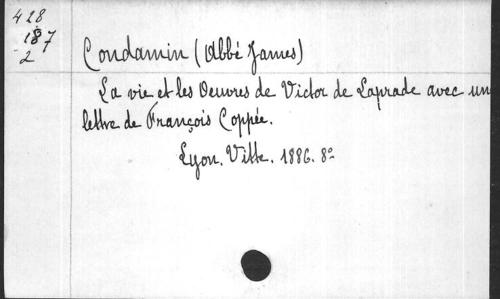 428
187
2
Condamin (Abbé James)
La vie et les Oeuvres de Victor de Laprade avec un
lettre de François Coppée.
Lyon. Vitte. 1886. 8°